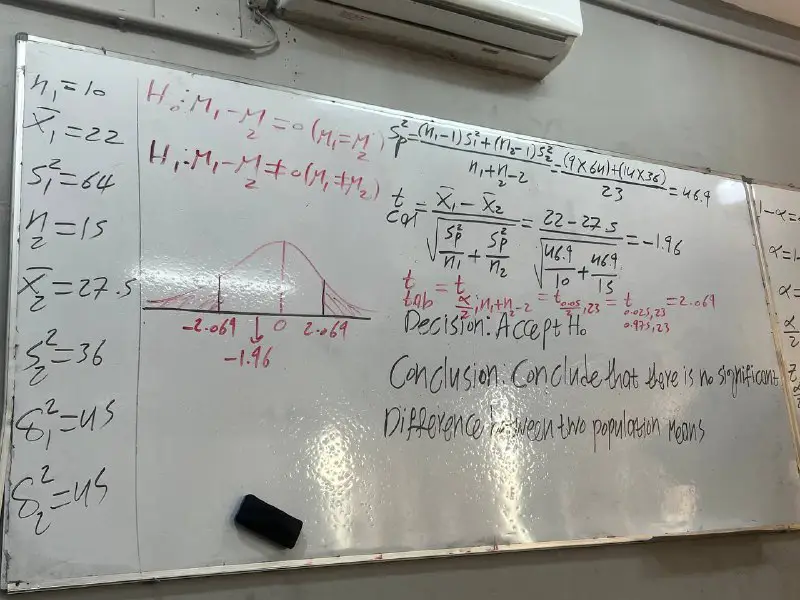 n₁=10
X̄₁=22
S₁²=64
n₂=15
X̄₂=27.5
S₂²=36
δ₁²=45
δ₂²=45
H₀:M₁-M₂=0(M₁=M₂)
H₁:M₁-M₂≠0(M₁≠M₂)
-2.069 0 2.069
-1.96
Sp²=((n₁-1)S₁²+(n₂-1)S₂²)/(n₁+n₂-2)=((9×64)+(14×36))/23=46.9
t cal=(X̄₁-X̄₂)/√(Sp²/n₁+Sp²/n₂)=(22-27.5)/√(46.9/10+46.9/15)=-1.96
t tab=t α/2;n₁+n₂-2=t 0.05/2,23=t 0.025,23 0.975,23=2.069
Decision: Accept H₀
Conclusion: Conclude that there is no significant
Difference between two population means
1-α=
α=1-
α=
α/2